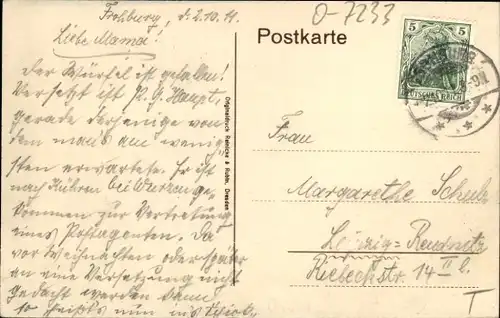 Frohburg, d. 2.10.11.
O-7233
Liebe Mama!
der Würfel ist gefallen!
Versetzt ist P. G. Haupt,
gerade derjenige von
dem man's am wenig-
sten erwartete. Er ist
nach Kühren bei Wurzen ge-
kommen zur Vertretung
eines Postagenten. Da
vor Weihnachten oder später
an eine Versetzung nicht
gedacht werden kann
so heißts nun ins
Postkarte
5 5
DEUTSCHES REICH
Originaldruck Reinicke & Rubin, Dresden
Frau
Margarethe Schulz
Leipzig=Reudnitz
Riebeckstr. 14 II l.
T